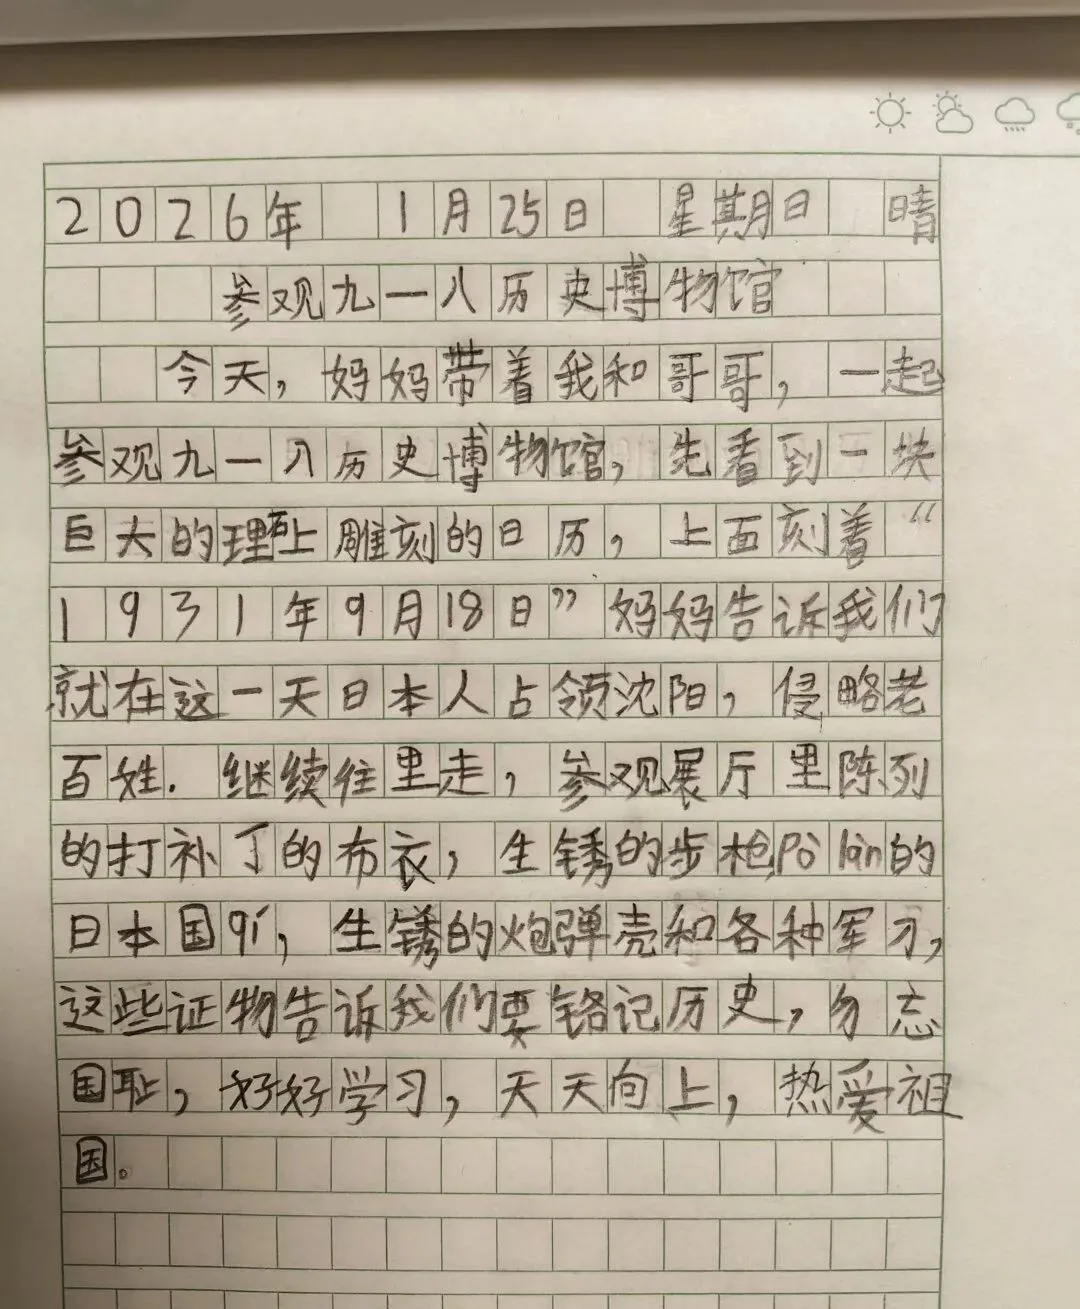 2026年 1月25日 星期日 晴
参观九一八历史博物馆
今天，妈妈带着我和哥哥，一起
参观九一八历史博物馆，先看到一块
巨大的理石上雕刻的日历，上面刻着“
1931年9月18日”妈妈告诉我们
就在这一天日本人占领沈阳，侵略老
百姓．继续往里走，参观展厅里陈列
的打补丁的布衣，生锈的步枪pò làn的
日本国qí，生锈的炮弹壳和各种军刀，
这些证物告诉我们要铭记历史，勿忘
国耻，好好学习，天天向上，热爱祖
国。